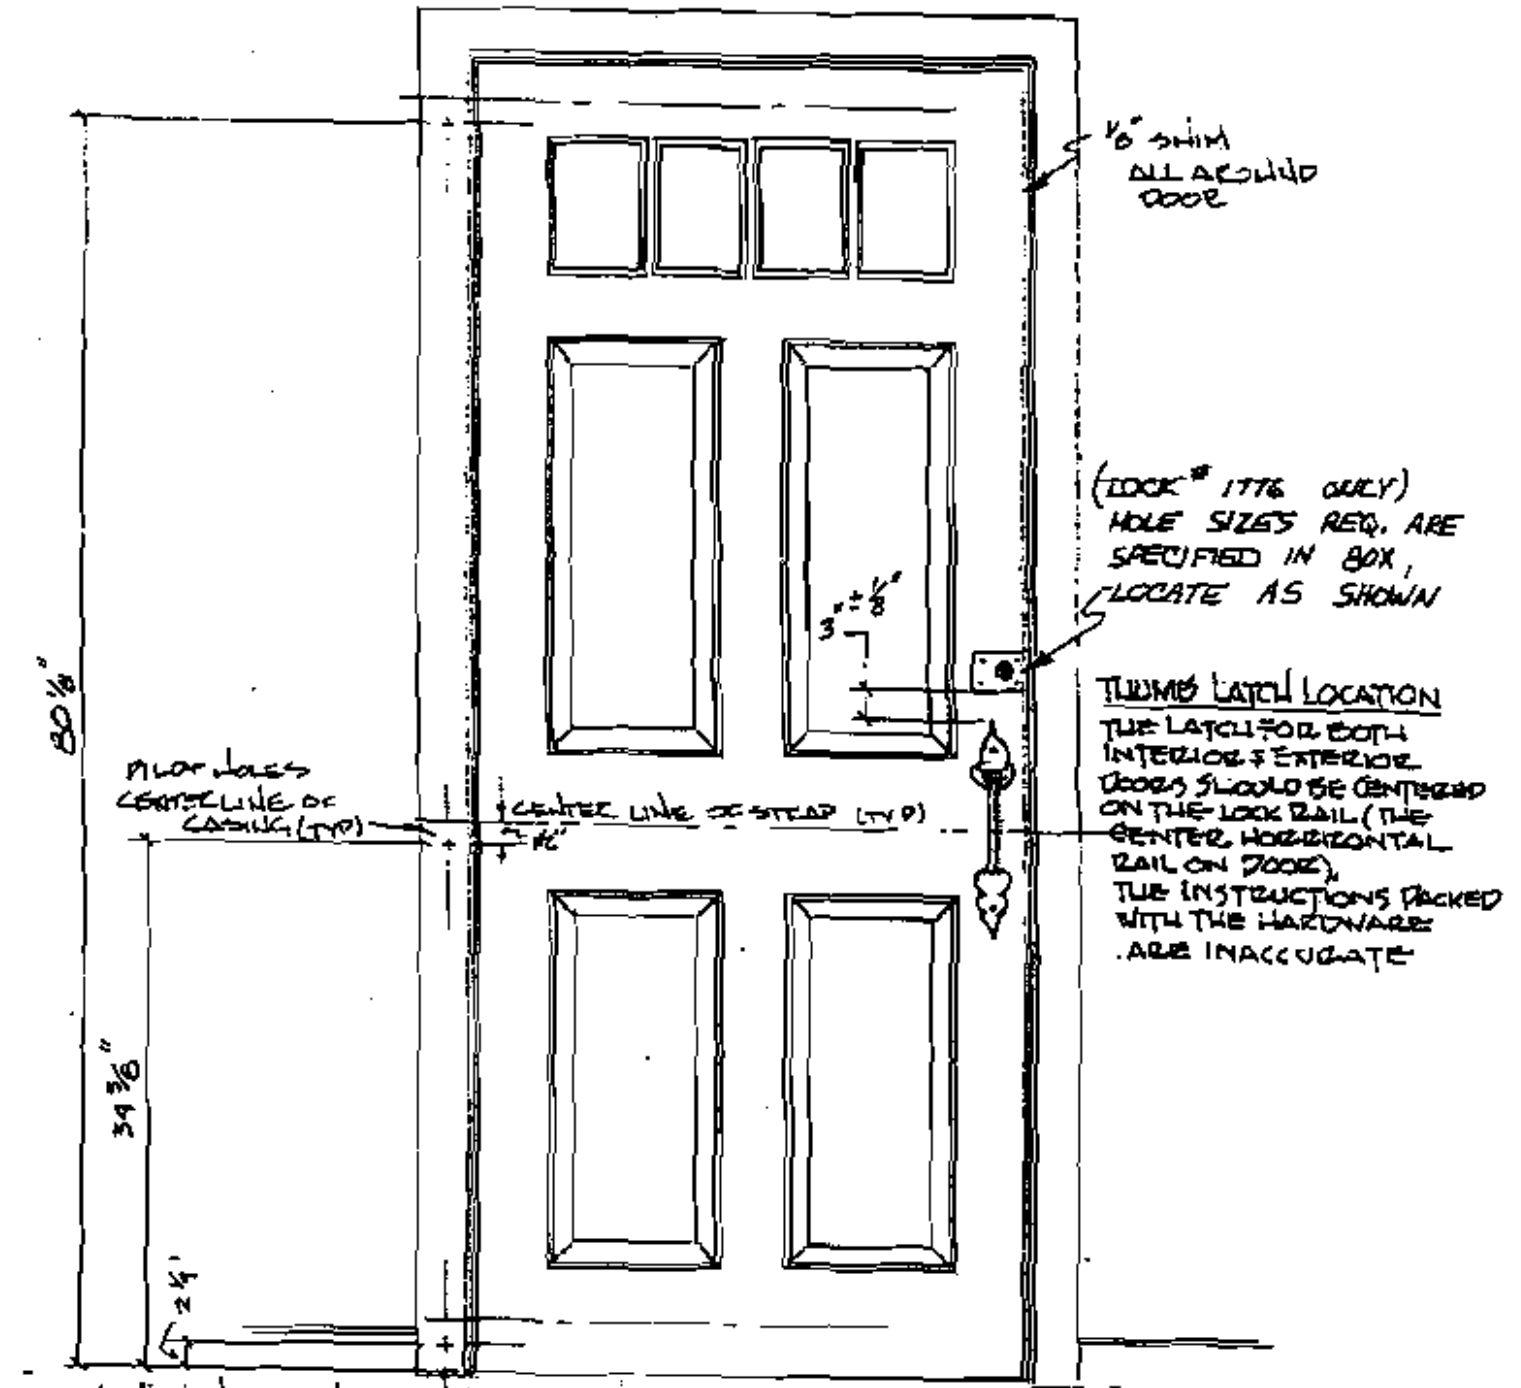 1/8" SHIM
ALL AROUND
DOOR
(LOCK # 1776 ONLY)
HOLE SIZES REQ. ARE
SPECIFIED IN BOX,
LOCATE AS SHOWN
3" ± 1/8"
THUMB LATCH LOCATION
THE LATCH FOR BOTH
INTERIOR & EXTERIOR
DOORS SHOULD BE CENTERED
ON THE LOCK RAIL (THE
CENTER HORRIZONTAL
RAIL ON DOOR).
THE INSTRUCTIONS PACKED
WITH THE HARDWARE
ARE INACCURATE
80 1/8"
PILOT HOLES
CENTERLINE OF
CASING (TYP)
CENTER LINE OF STRAP (TYP)
34 3/8"
2 1/4"